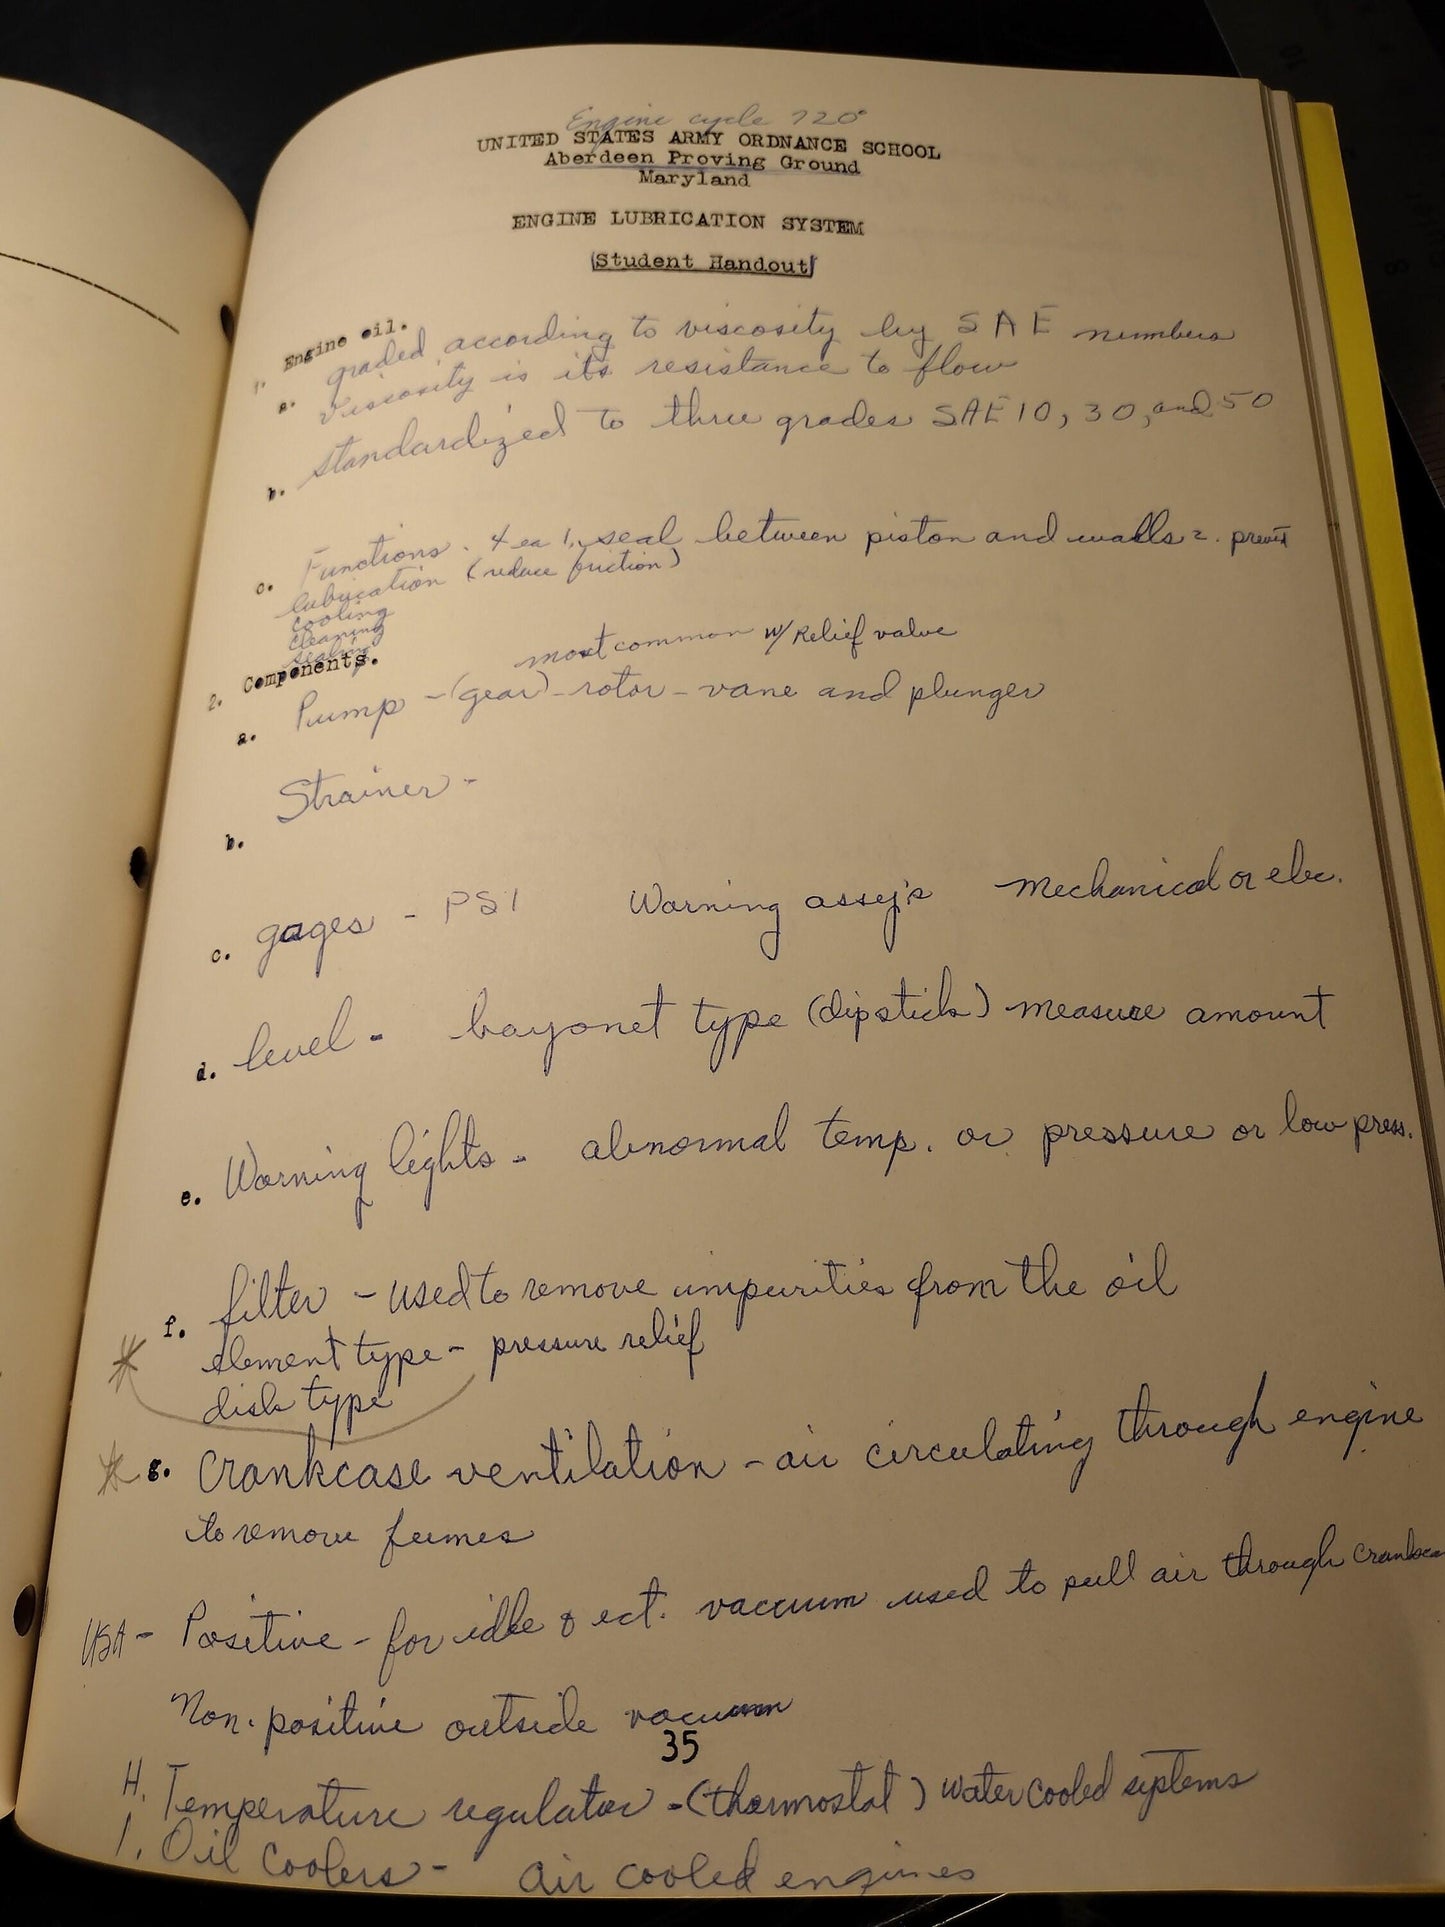 Engine cycle 720°
UNITED STATES ARMY ORDNANCE SCHOOL
Aberdeen Proving Ground
Maryland
ENGINE LUBRICATION SYSTEM
(Student Handout)
1. Engine oil.
a. graded according to viscosity by SAE numbers
Viscosity is its resistance to flow
b. standardized to three grades SAE 10, 30, and 50
c. Functions. 4 ea 1. seal between piston and walls 2.
lubrication (reduce friction)
cooling
cleaning
sealing
2. Components.
most common w/ Relief valve
a. Pump - (gear) - rotor - vane and plunger
b. Strainer -
c. gages - PSI Warning assy's mechanical or elec.
d. level - bayonet type (dipstick) measure amount
e. Warning lights - abnormal temp. or pressure or low press.
f. filter - used to remove impurities from the oil
element type - pressure relief
disk type
g. Crankcase ventilation - air circulating through engine
to remove fumes
USA - Positive - for idle & ect. vacuum used to pull air through
Non-positive outside vacuum
35
H. Temperature regulator - (thermostat) water cooled systems
I. Oil coolers - air cooled engines